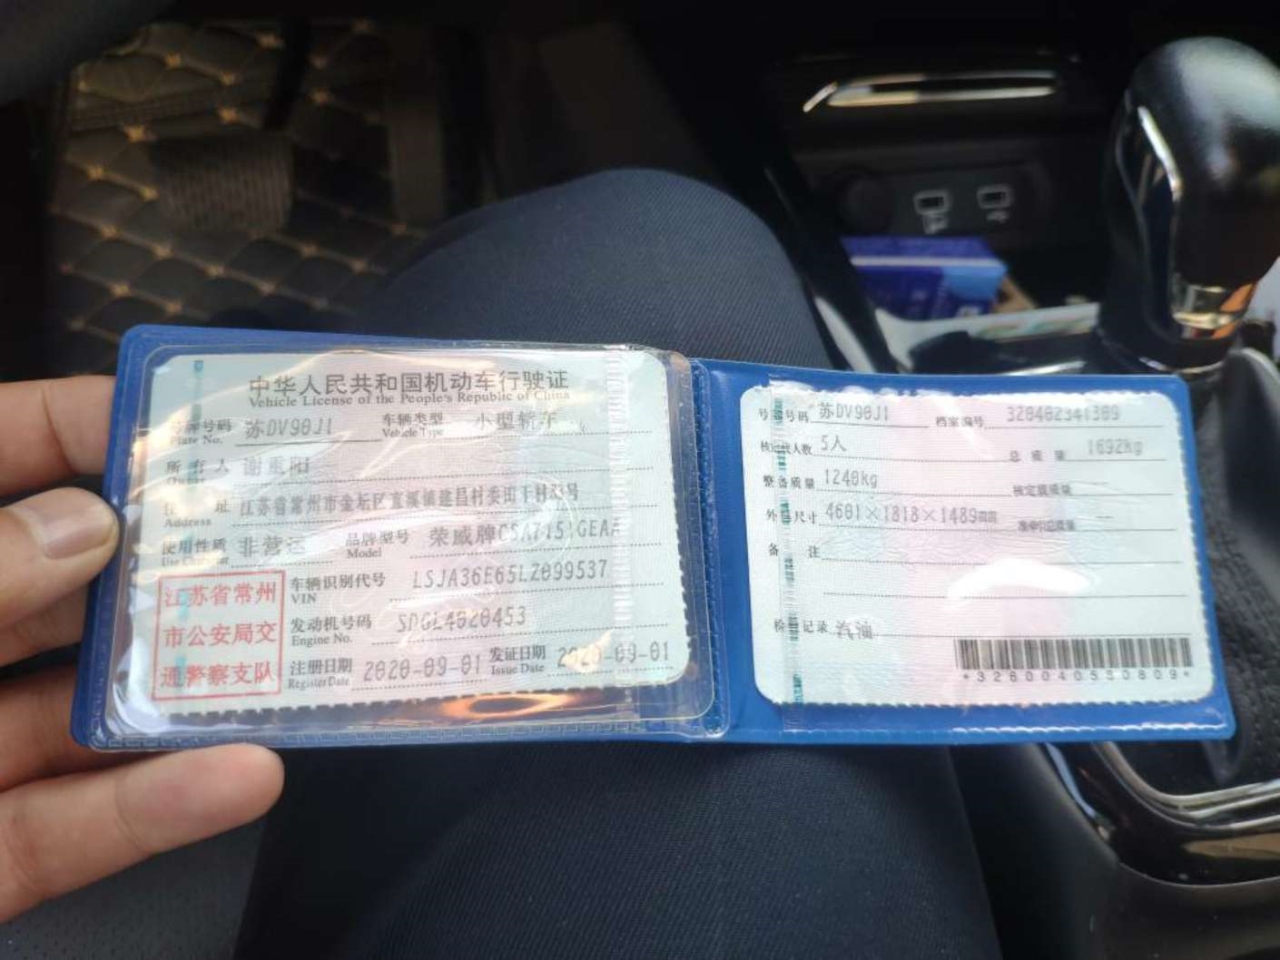 中华人民共和国机动车行驶证
Vehicle License of the People's Republic of China
号牌号码 苏DV90J1 车辆类型 小型轿车
Plate No. Vehicle Type
所有人
Owner
住址 江苏省常州市金坛区直溪镇建昌村委田干村
Address
使用性质 非营运 品牌型号 荣威牌
Use Character Model
江苏省常州
市公安局交
通警察支队
车辆识别代号 LSJA36E65LZ099537
VIN
发动机号码 SDGL4020453
Engine No.
注册日期 2020-09-01 发证日期 2020-09-01
Register Date Issue Date
号牌号码 苏DV90J1 档案编号 320402341309
核定载人数 5人 总质量 1692kg
整备质量 1240kg 核定载质量
外廓尺寸 4601×1818×1489mm 准牵引总质量
备注
检验记录 汽油
*3260040530809*